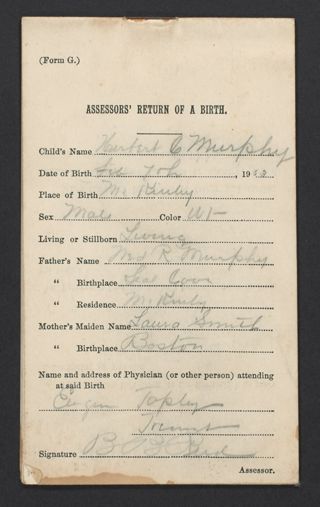 (Form G.)
ASSESSORS' RETURN OF A BIRTH.
Child's Name Herbert C Murphy
Date of Birth 7th, 19
Place of Birth Mc Kinley
Sex Male Color Wh
Living or Stillborn Living
Father's Name R Murphy
" Birthplace Seal Cove
" Residence McKinley
Mother's Maiden Name Laura Smith
" Birthplace Boston
Name and address of Physician (or other person) attending
at said Birth
Topley
Tremont
Signature
Assessor.